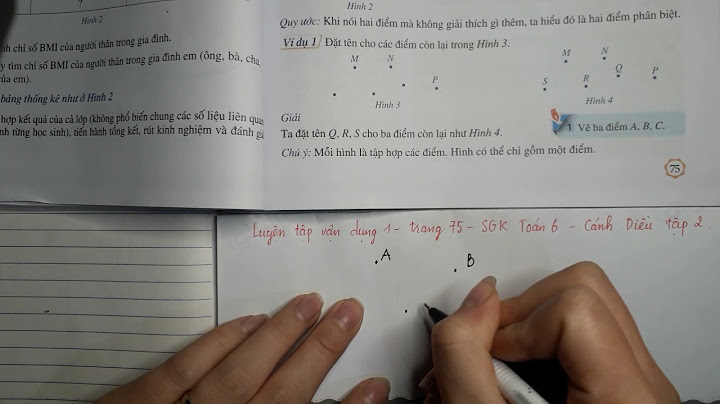 Hình 2
nh chỉ số BMI của người thân trong gia đình.
y tìm chỉ số BMI của người thân trong gia đình em (ông, bà, cha,
của em).
bảng thống kê như ở Hình 2
hợp kết quả của cả lớp (không phổ biến chung các số liệu liên quan
nh từng học sinh), tiến hành tổng kết, rút kinh nghiệm và đánh giá
Hình 2
Quy ước: Khi nói hai điểm mà không giải thích gì thêm, ta hiểu đó là hai điểm phân biệt.
Ví dụ 1 Đặt tên cho các điểm còn lại trong Hình 3.
M N
P
Hình 3
M N
Q P
S R
Hình 4
Giải
Ta đặt tên Q, R, S cho ba điểm còn lại như Hình 4.
1 Vẽ ba điểm A, B, C.
Chú ý: Mỗi hình là tập hợp các điểm. Hình có thể chỉ gồm một điểm.
75
Luyện tập vận dụng 1 - trang 75 - SGK Toán 6 - Cánh Diều tập 2.
A
B